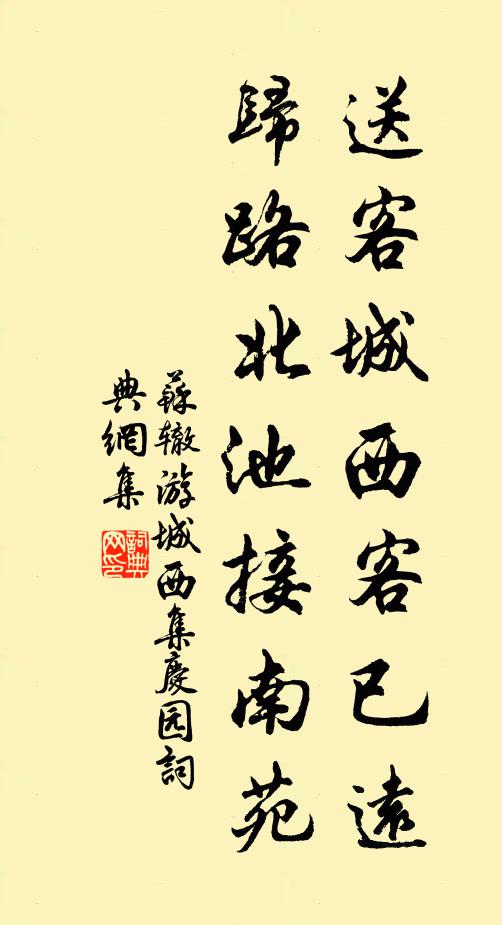 送客城西客已遠
歸路北池接南苑
蘇辙游城西集慶园詞
典網集
詞典网印